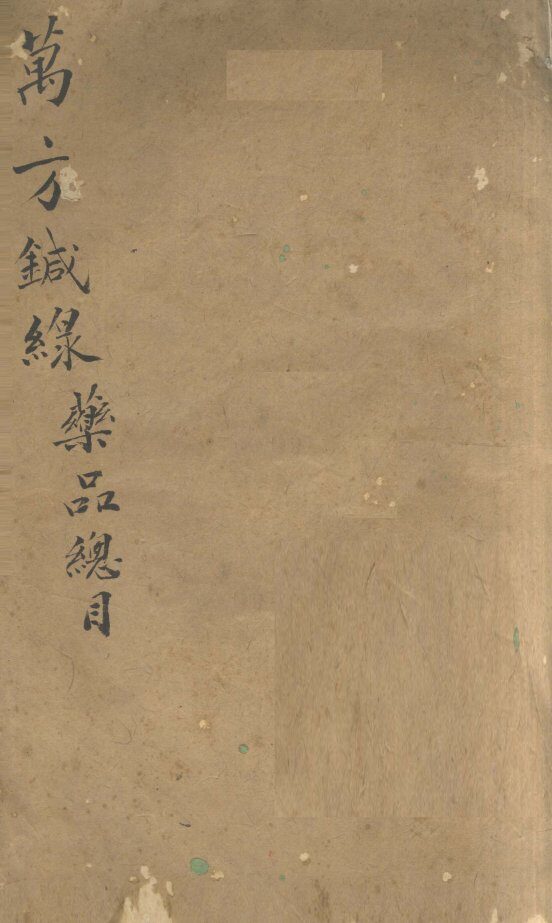 萬方鍼線
藥品總目